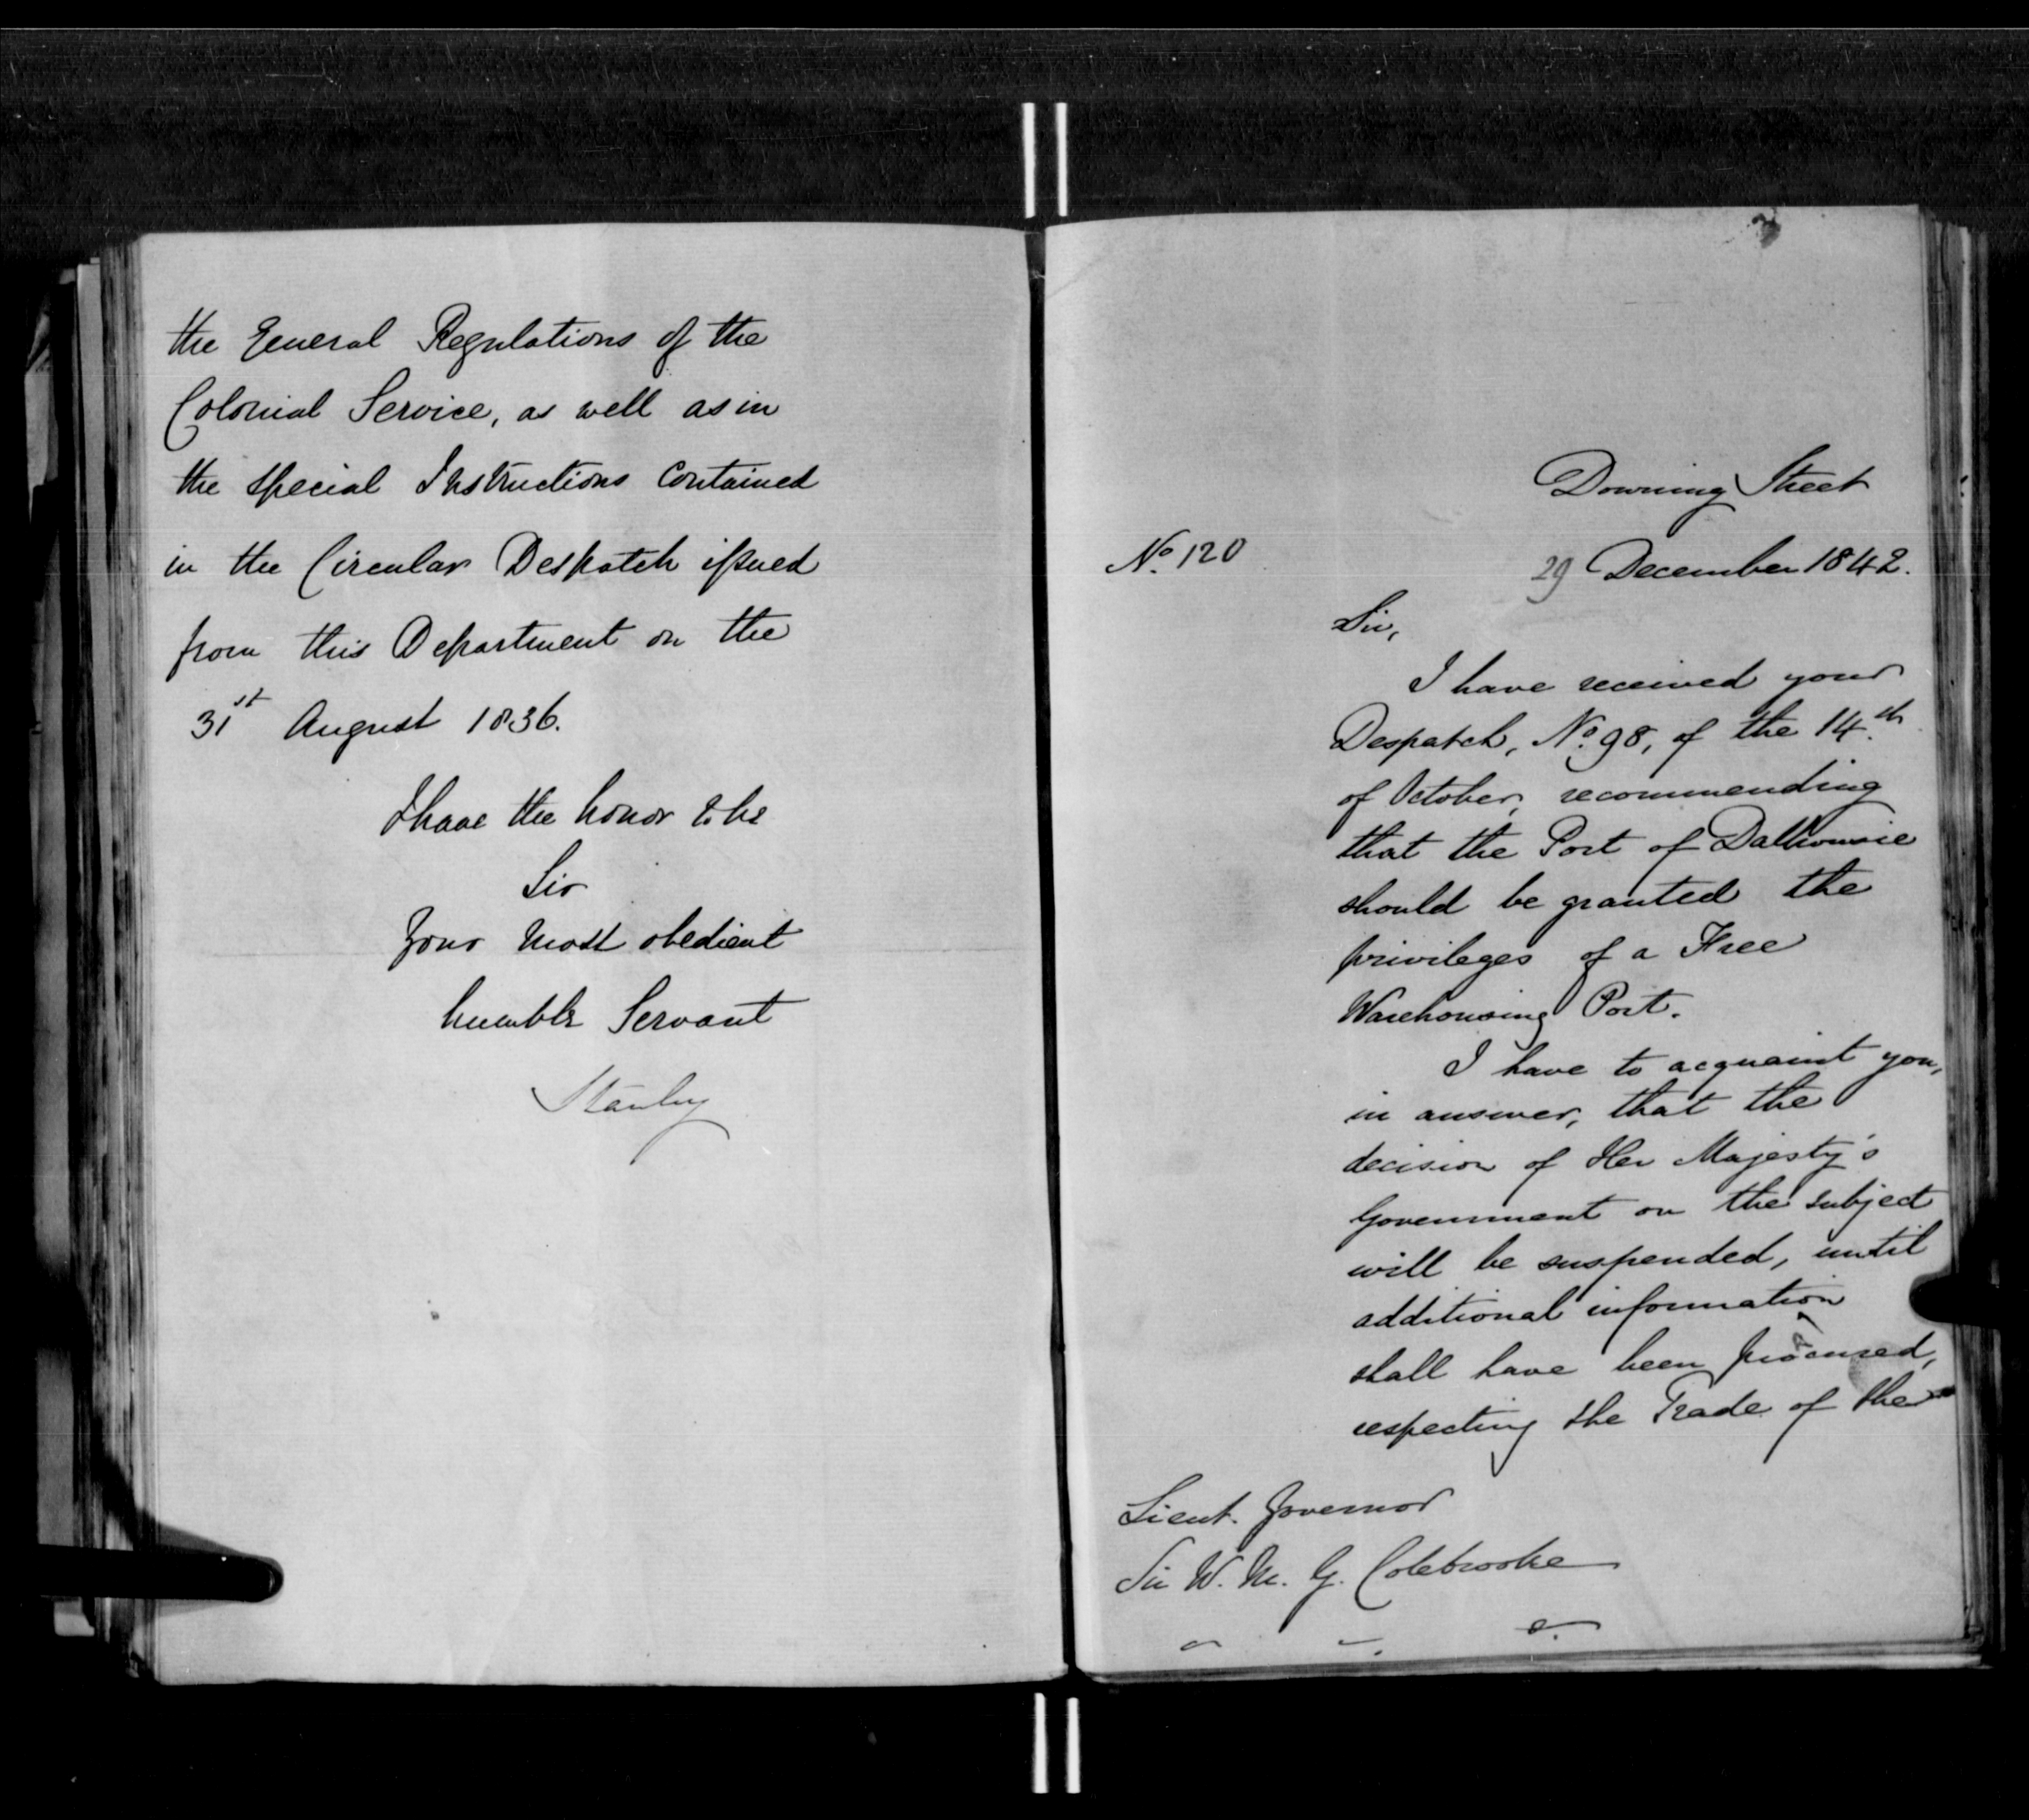 the General Regulations of the
Colonial Service, as well as in
the special Instructions contained
in the Circular Despatch issued
from this Department on the
31st August 1836.
I have the honor to be
Sir
Your most obedient
humble Servant
Stanley
Downing Street
No. 120
29 December 1842.
Sir,
I have received your
Despatch, No. 98, of the 14th
of October, recommending
that the Port of Dalhousie
should be granted the
privileges of a Free
Warehousing Port.
I have to acquaint you,
in answer, that the
decision of Her Majesty's
Government on the subject
will be suspended, until
additional information
shall have been procured,
respecting the Trade of the
Lieut. Governor
Sir W. M. G. Colebrooke